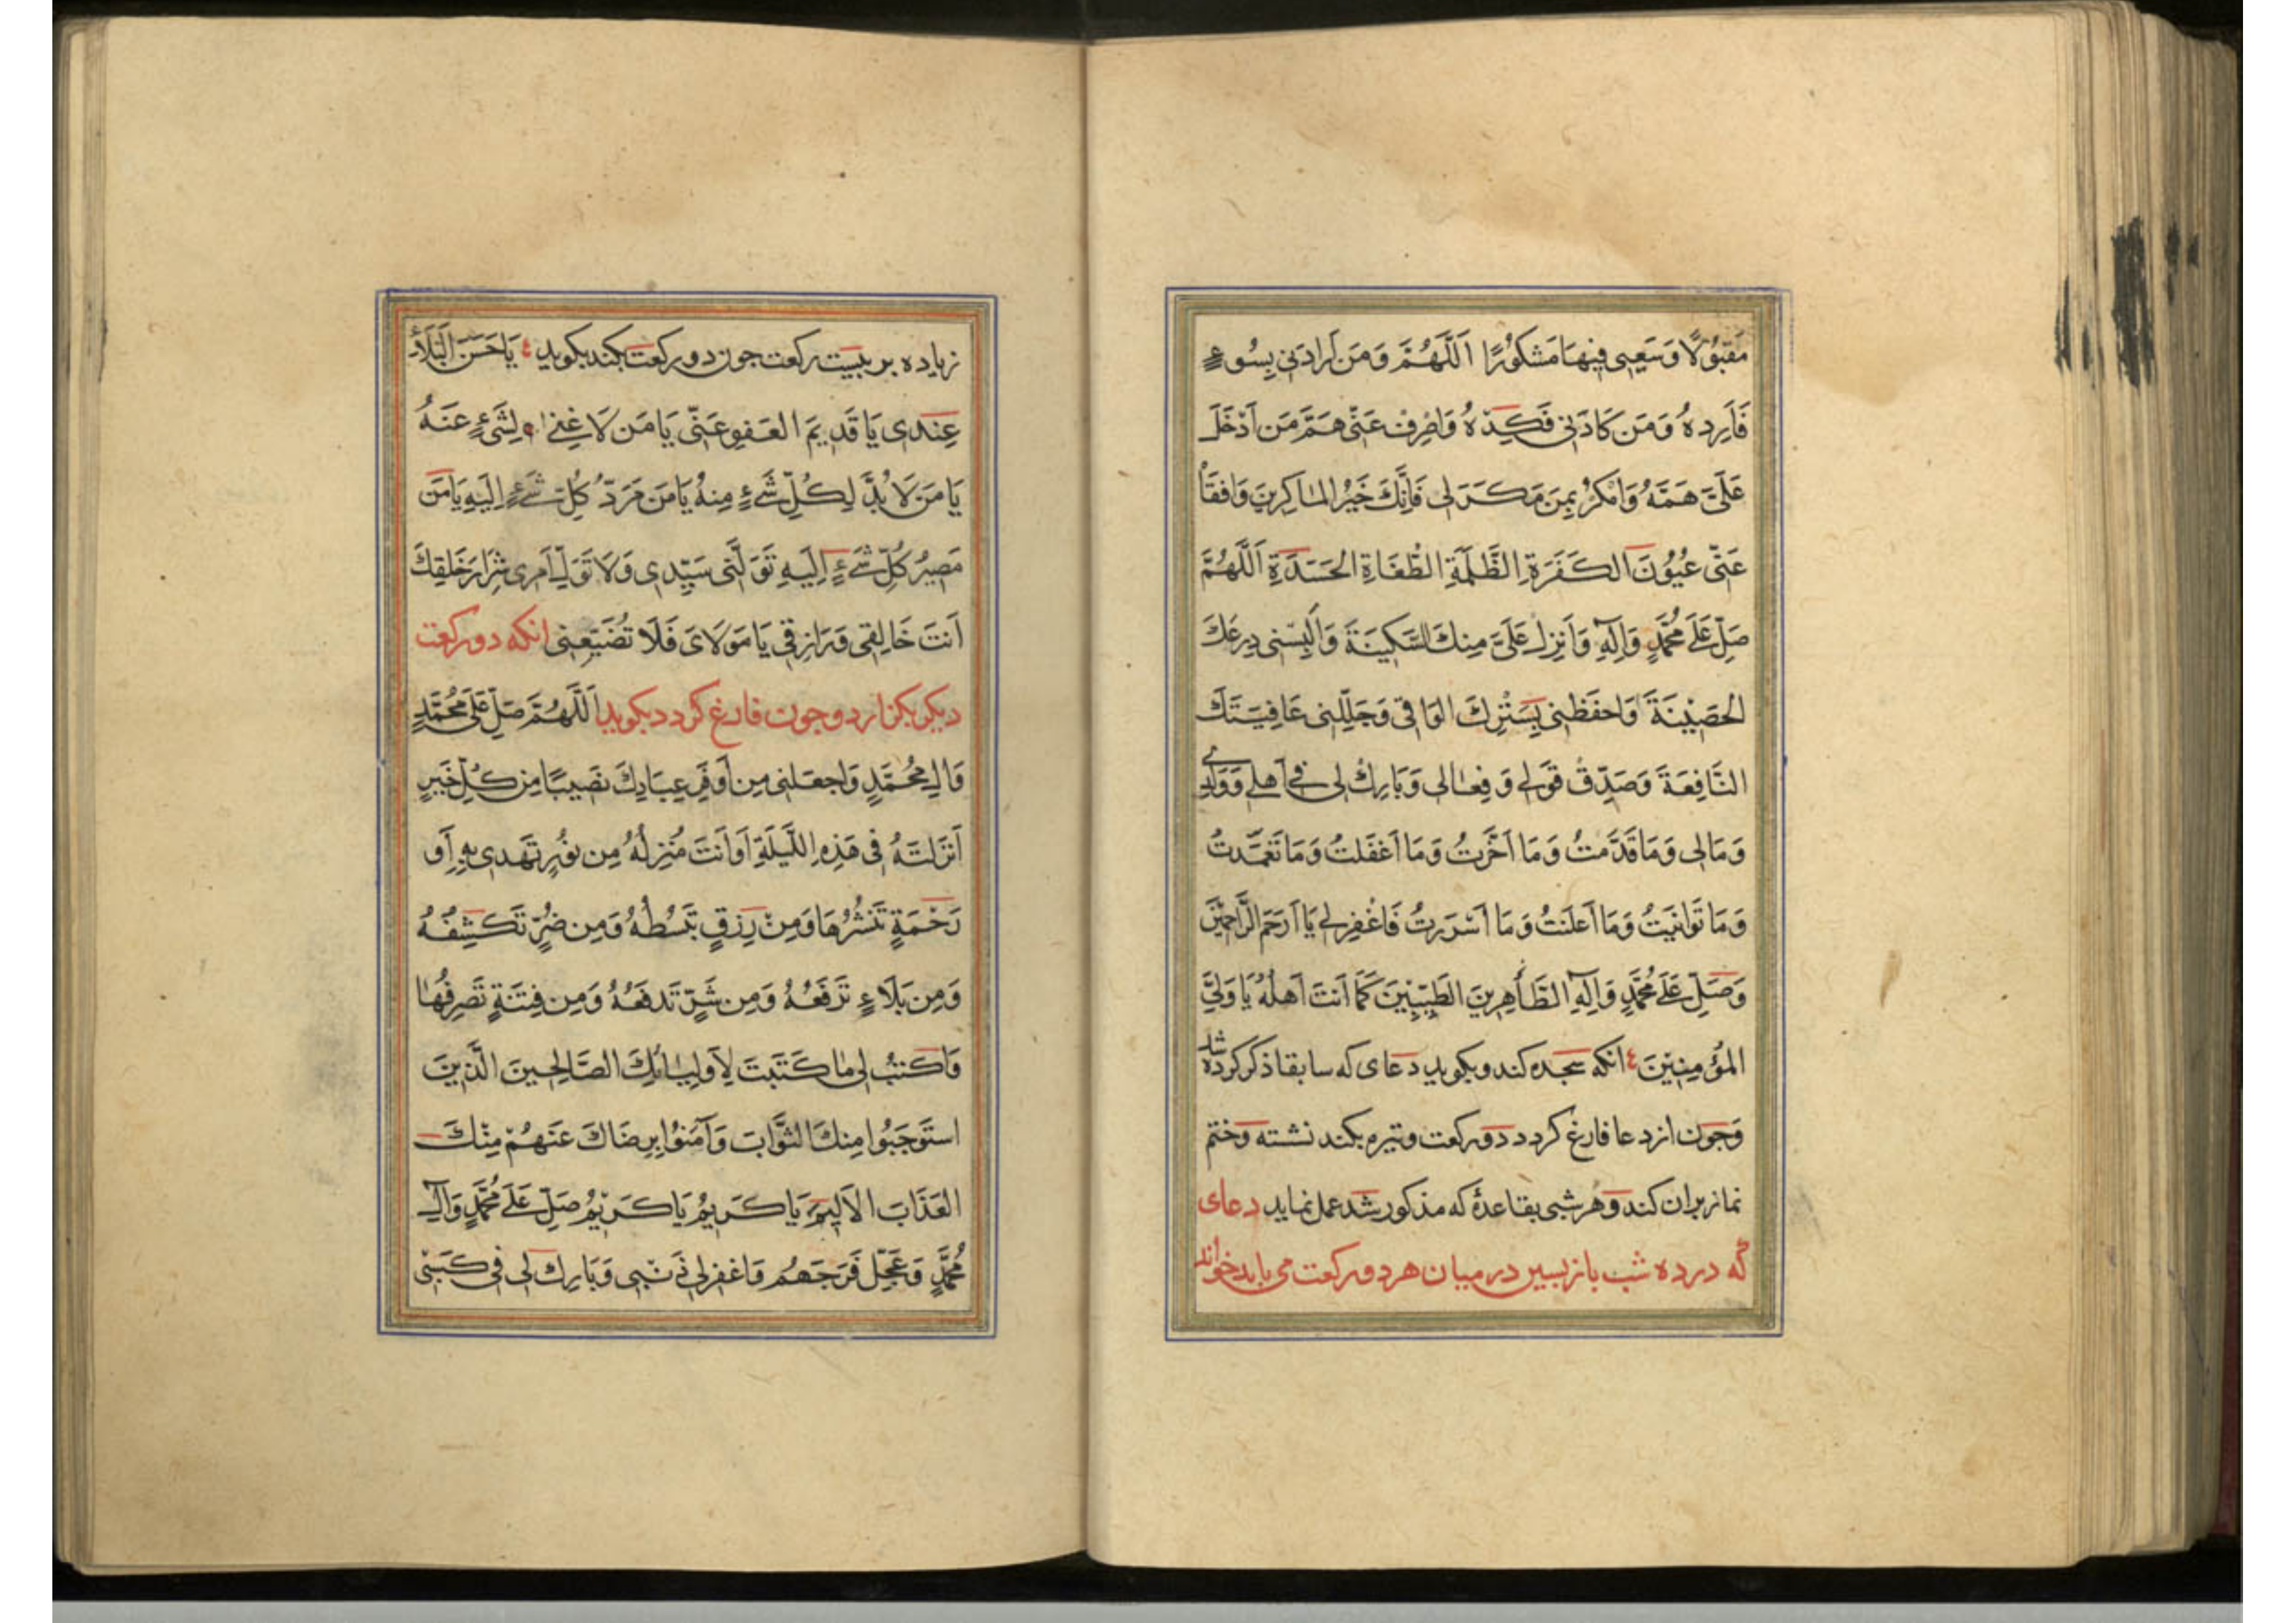 مَقبُولًا وَسَعیِی فیِهَا مَشکُورًا اَللَّهُمَّ وَمَن اَرادَنِی بِسُوءٍ
فَاَرِدهُ وَمَن کَادَنِی فَکِدْهُ وَاصْرِفْ عَنّی هَمَّ مَن اَدْخَلَ
عَلَیَّ هَمَّهُ وَامْکُرْ بِمَن مَکَرَ لی فَاِنَّکَ خَیْرُ الماٰکِرینَ وَافقَأ
عَنّی عُیُونَ الکَفَرَةِ الظَّلَمَةِ الطُّغَاةِ الحَسَدَةِ اَللَّهُمَّ
صَلِّ عَلَی مُحَمَّدٍ وَآلِهِ وَاَنزِل عَلَیَّ مِنكَ السَّکینَةَ وَاَلبِسنی دِرعَكَ
الحَصیْنَةَ وَاحفَظنی بِسَتْرِكَ الوَاقی وَجَلِّلنی عَافِیَتَكَ
النَّافِعَةَ وَصَدِّقْ قَولی وَفِعٰالی وَبَارِكْ لی فی اَهلی وَوَلَدی
وَمَالی وَمَا قَدَّمتُ وَمَا اَخَّرتُ وَمَا اَغفَلتُ وَمَا تَعَمَّدتُ
وَمَا تَوانَیتُ وَمَا اَعلَنتُ وَمَا اَسْرَرتُ فَاغْفِر لی یَا اَرحَمَ الرَّاحِمیْنَ
وَصَلِّ عَلَی مُحَمَّدٍ وَآلِهِ الطَّاهِرینَ الطَّیِّبینَ کَمَا اَنتَ اَهلُهُ یَا وَلِیَّ
المُؤمِنِیْنَ انکه سجده کند وبکوید دعای که سابقا ذکر کرده شد
وجون از دعا فارغ کردد دورکعت وتیره بکند نشسته وختم
نماز بران کند وهر شبی بقاعدهٔ که مذکور شد عمل نماید دعای
که در ده شب باز پسین در میان هر دورکعت می باید خواند
زیاده بر بیست رکعت جون دورکعت بکند بکوید یَا حَسَنَ البَلَاءِ
عِندی یَا قَدیِمَ العَفوِ عَنّی یَا مَن لَا غِنیٰ لِشَیءٍ عَنهُ
یَا مَن لَا بُدَّ لِکُلِّ شَیءٍ مِنهُ یَا مَن مَرَدُّ کُلِّ شَیءٍ اِلَیهِ یَا مَن
مَصیرُ کُلِّ شَیءٍ اِلَیهِ تَوَلَّنی سَیِّدی وَلَا تُوَلِّ اَمری شِرَارَ خَلقِكَ
اَنتَ خَالِقی وَرَازِقی یَا مَولَایَ فَلَا تُضَیِّعنی انکه دورکعت
دیکر بکزارد وجون فارغ کردد بکوید اَللَّهُمَّ صَلِّ عَلَی مُحَمَّدٍ
وَآلِ مُحَمَّدٍ وَاجعَلنی مِن اَوفَرِ عِبَادِكَ نَصیبًا مِن کُلِّ خَیرٍ
اَنزَلتَهُ فی هَذِهِ اللَّیلَةِ اَو اَنتَ مُنزِلُهُ مِن نُورٍ تَهدی بِهِ اَو
رَحْمَةٍ تَنشُرُهَا وَمِنْ رِزقٍ تَبسُطُهُ وَمِن ضُرٍّ تَکشِفُهُ
وَمِن بَلَاءٍ تَرفَعُهُ وَمِن شَرٍّ تَدفَعُهُ وَمِن فِتنَةٍ تَصرِفُهَا
وَاکتُب لی مٰا کَتَبتَ لِاَولِیٰائِكَ الصَّالِحینَ الَّذینَ
استَوجَبُوا مِنكَ الثَّوَابَ وَآمَنُوا بِرِضَاكَ عَنهُمْ مِنْكَ
العَذَابَ الاَلیمَ یَا کَریمُ یَا کَریْمُ صَلِّ عَلَی مُحَمَّدٍ وَآلِ
مُحَمَّدٍ وَعَجِّل فَرَجَهُم وَاغفِر لی ذَنْبی وَبَارِك لی فی کَسْبی